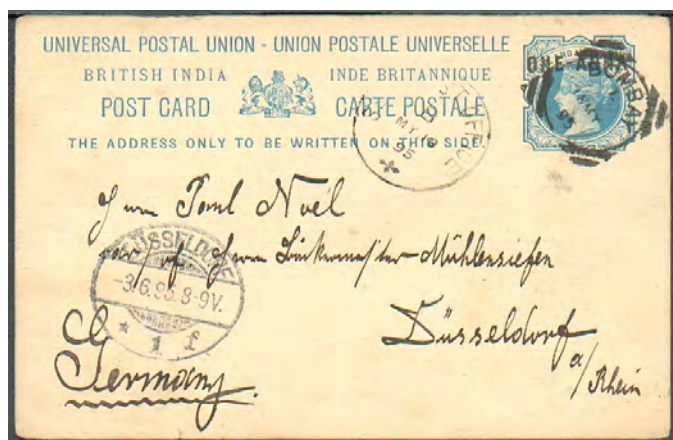 UNIVERSAL POSTAL UNION - UNION POSTALE UNIVERSELLE
BRITISH INDIA INDE BRITANNIQUE
POST CARD CARTE POSTALE
THE ADDRESS ONLY TO BE WRITTEN ON THIS SIDE.
ONE ANNA
BOMBAY
MY 18
95
Herrn Paul Noël
Herrn Bäckermeister Mühlensiefen
Düsseldorf
a/Rhein
Germany.
DÜSSELDORF
-3.6.95.8-9V.
* 1 f